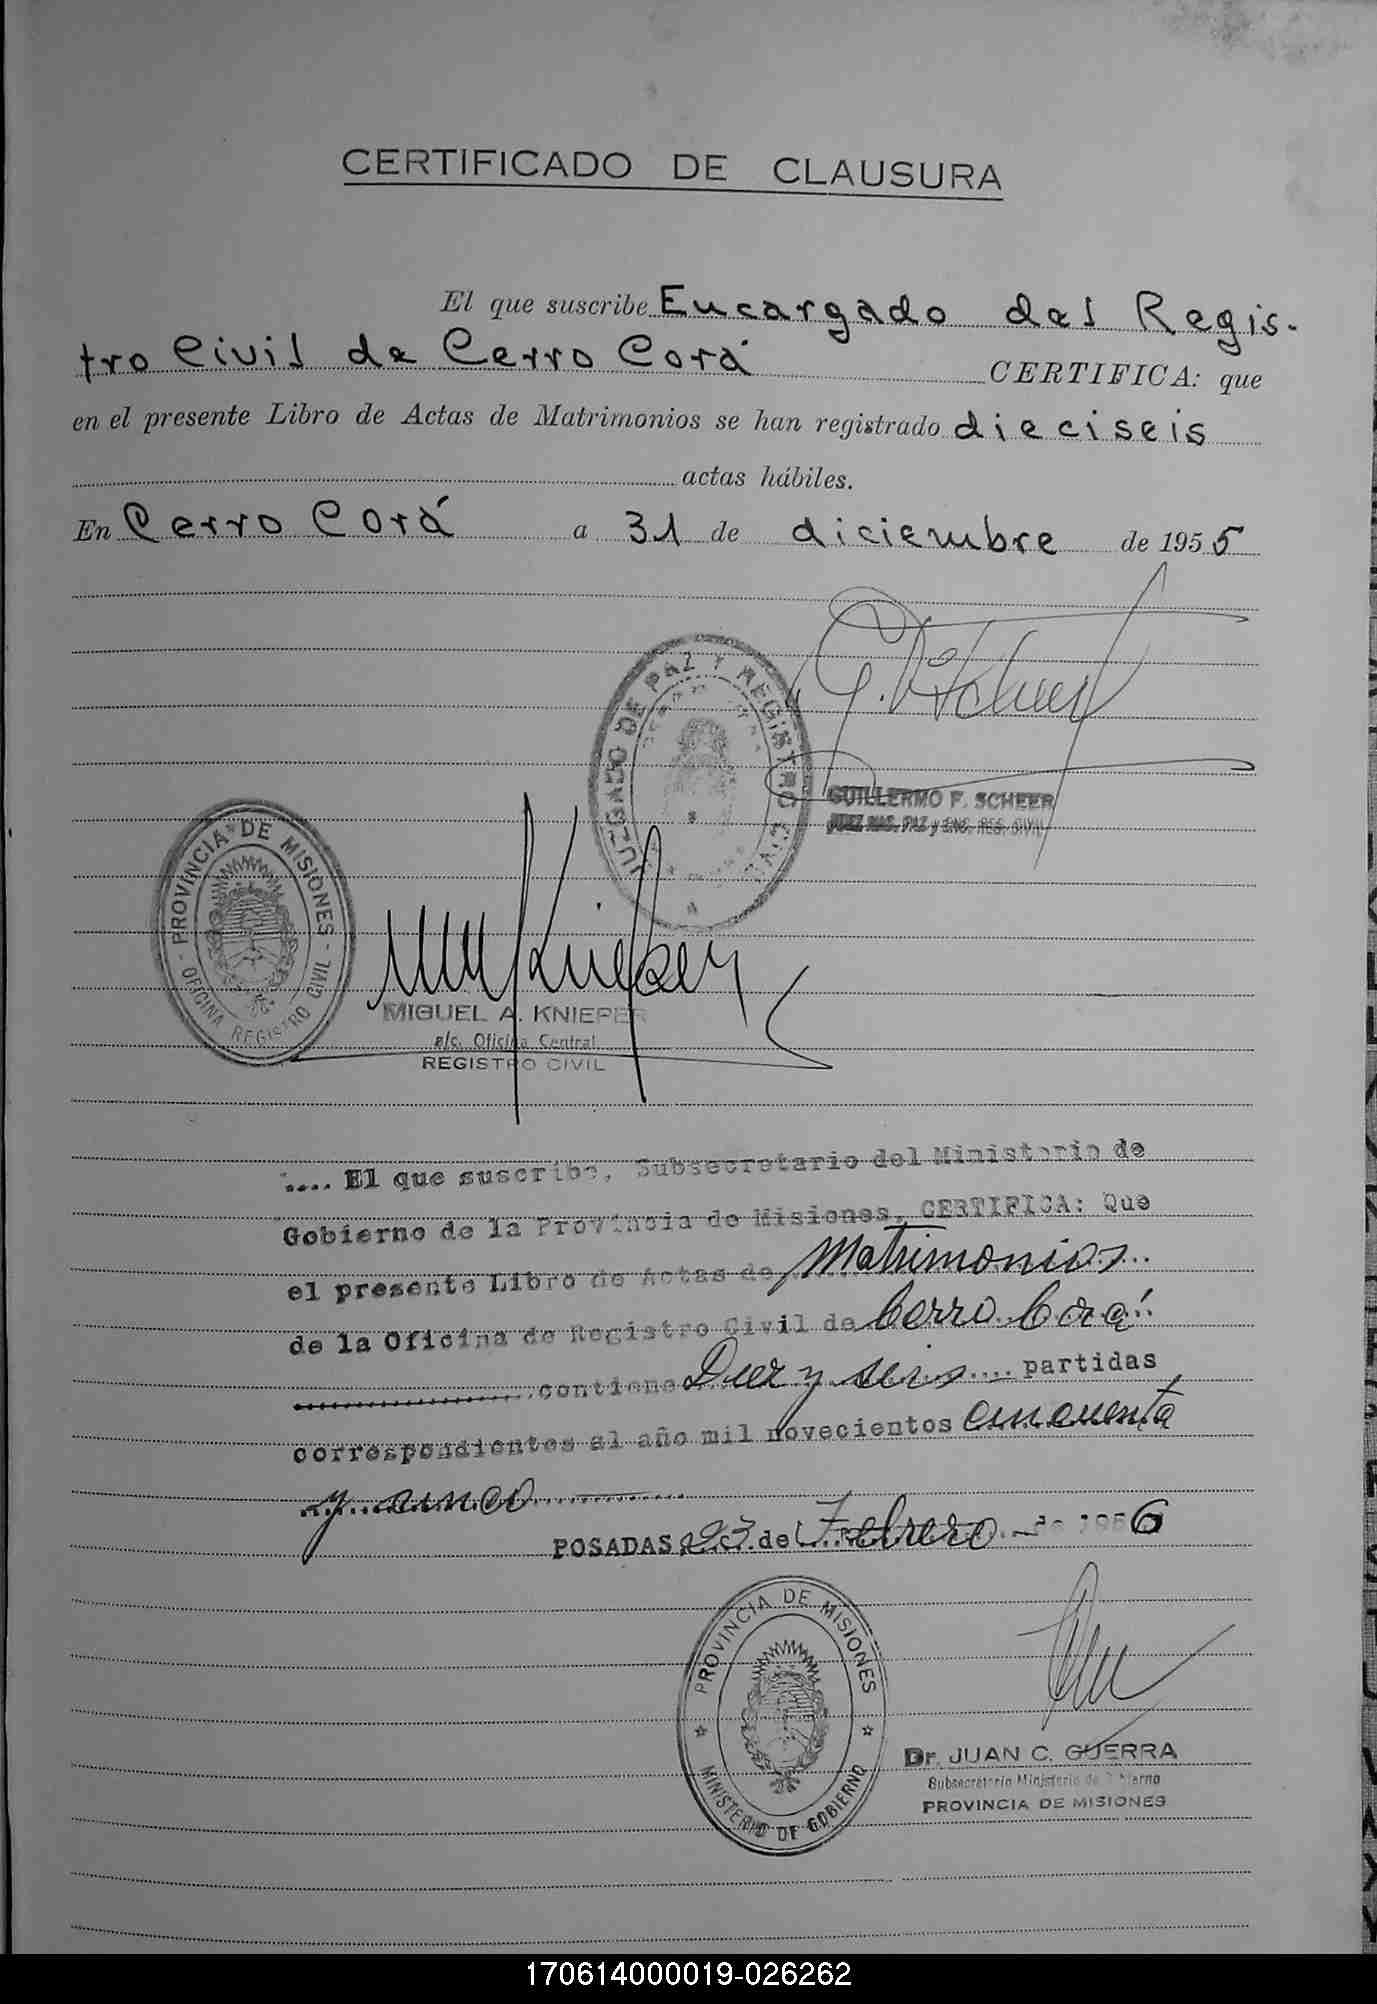 CERTIFICADO DE CLAUSURA
El que suscribe Encargado del Regis-
tro Civil de Cerro Corá CERTIFICA: que
en el presente Libro de Actas de Matrimonios se han registrado dieciseis
actas hábiles.
En Cerro Corá a 31 de diciembre de 1955
JUZGADO DE PAZ Y REGISTRO CIVIL
GUILLERMO F. SCHEER
JUEZ NAC. PAZ y ENC. REG. CIVIL
PROVINCIA DE MISIONES
- OFICINA REGISTRO CIVIL -
MIGUEL A. KNIEPER
a/c. Oficina Central
REGISTRO CIVIL
.... El que suscribe, Subsecretario del Ministerio de
Gobierno de la Provincia de Misiones, CERTIFICA: Que
el presente Libro de Actas de Matrimonios...
de la Oficina de Registro Civil de Cerro Corá
contiene Diez y seis.... partidas
correspondientes al año mil novecientos cincuenta
y cinco
POSADAS, 23 de Febrero de 1956
PROVINCIA DE MISIONES
MINISTERIO DE GOBIERNO
Dr. JUAN C. GUERRA
Subsecretario Ministerio de Gobierno
PROVINCIA DE MISIONES
170614000019-026262